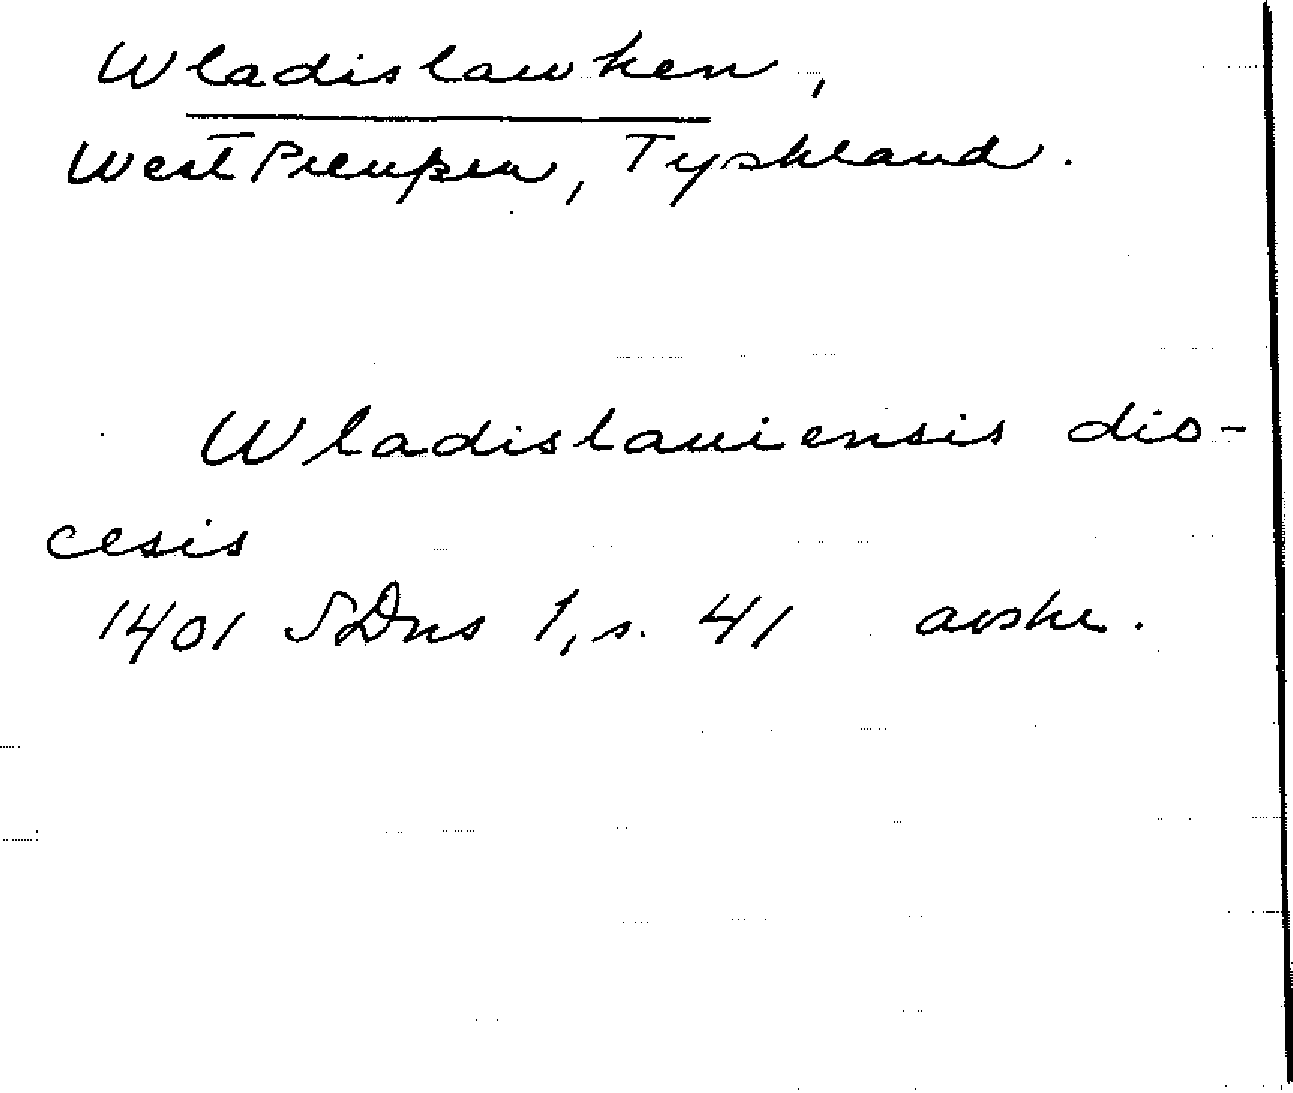 Wladislawken,
West Preußen, Tyskland.
Wladislauiensis dio-
cesis
1401 SDns 1, s. 41 avskr.